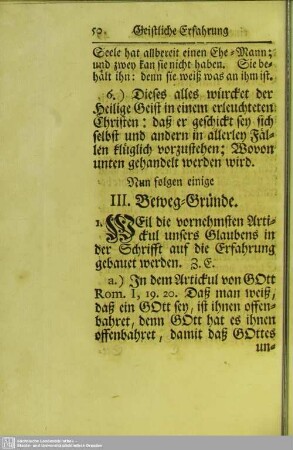 50. Geistliche Erfahrung
Seele hat allbereit einen Ehe-Mann;
und zwey kan sie nicht haben. Sie be-
hält ihn: denn sie weiß was an ihm ist.
6.) Dieses alles würcket der
Heilige Geist in einem erleuchteten
Christen: daß er geschickt sey sich
selbst und andern in allerley Fäl-
len klüglich vorzustehen; Wovon
unten gehandelt werden wird.
Nun folgen einige
III. Beweg-Gründe.
1. WEil die vornehmsten Arti-
ckul unsers Glaubens in
der Schrifft auf die Erfahrung
gebauet werden. Z. E.
a.) In dem Artickul von GOtt
Rom. 1, 19. 20. Daß man weiß,
daß ein GOtt sey, ist ihnen offen-
bahret, denn GOtt hat es ihnen
offenbahret, damit daß GOttes
un-